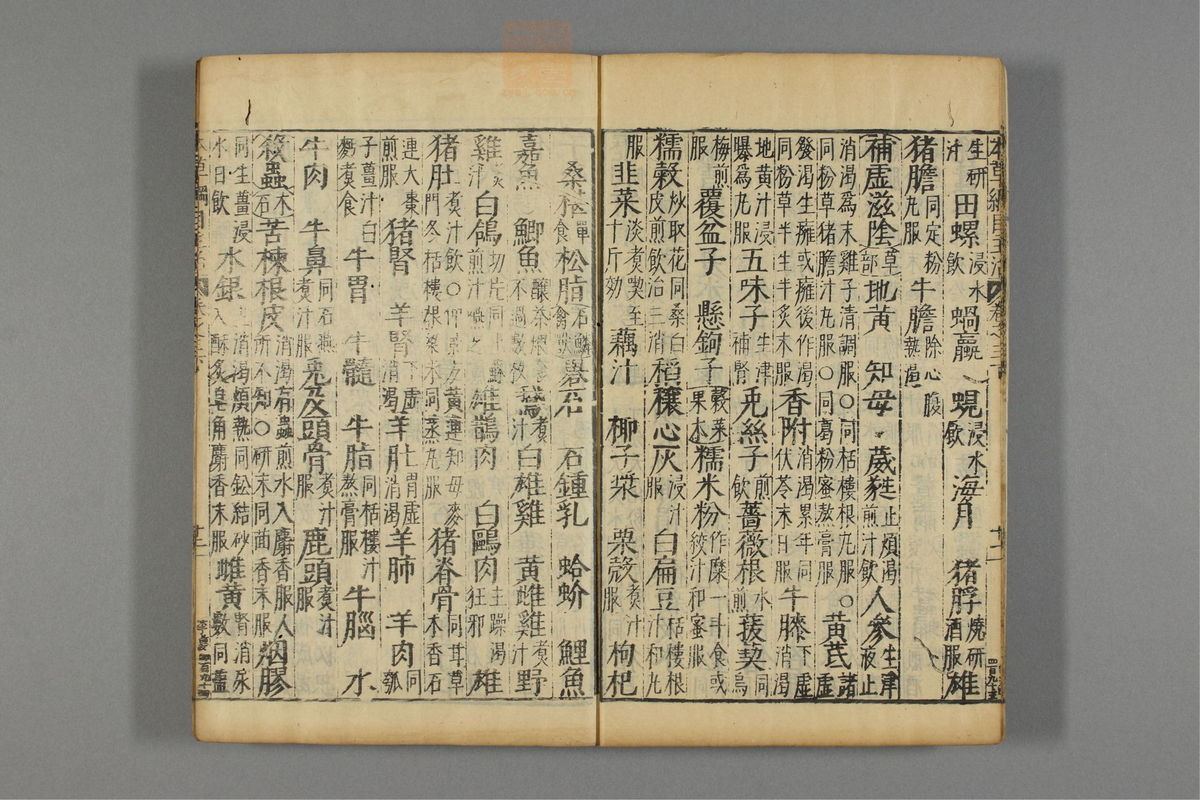 生研汁 田螺浸水飲 蝸蠃 蜆浸水飲 海月 猪脬燒研酒服 雄
猪膽同定粉丸服 牛膽除心腹熱渴
補虛滋陰 草部 地黃 知母 葳蕤止煩渴煎汁飲 人參生津液止
消渴爲末雞子清調服○同栝樓根丸服○同粉草猪膽汁丸服○同葛粉蜜熬膏服 黃芪諸虛
發渴生癰或癰後作渴同粉草半生半炙末服 香附消渴累年同伏苓末日服 牛膝下虛消渴
地黃汁浸曝爲丸服 五味子生津補腎 兎絲子煎飲 薔薇根水煎 菝葜同烏
梅煎服 覆盆子 懸鉤子 穀菜果木 糯米粉作糜一斗食或絞汁和蜜服
糯穀炒取花同桑白皮煎飲治三消 稻穰心灰浸汁服 白扁豆栝樓根汁和丸
服 韭菜淡煮喫至十斤効 藕汁 椰子漿 栗殼煮汁服 枸杞
桑椹單食 松脂 石鱗禽獸 礜石 石鍾乳 蛤蚧 鯉魚
嘉魚 鯽魚釀茶煨食不過數枚 鵞煮汁 白雄雞 黃雌雞煮汁 野
雞煮汁 白鴿切片同土蘇煎汁嚥之 雄鵲肉 白鷗肉主躁渴狂邪 雄
猪肚煮汁飲○仲景方黃連知母麥門冬栝樓根粱米同蒸丸服 猪脊骨同甘草木香石
連大棗煎服 猪腎 羊腎下虛消渴 羊肚胃虛消渴 羊肺 羊肉同瓠
子薑汁白麪煮食 牛胃 牛髓 牛脂同栝樓汁熬膏服 牛腦 水
牛肉 牛鼻同石燕煮汁服 兎及頭骨煮汁服 鹿頭煮汁服
殺蟲 木石 苦楝根皮消渴有蟲煎水入麝香服人所不知○研末同茴香末服 烟膠
同生薑浸水日飲 水銀主消渴煩熱同鉛結砂入酥炙皂角麝香末服 雌黃腎消尿數同鹽